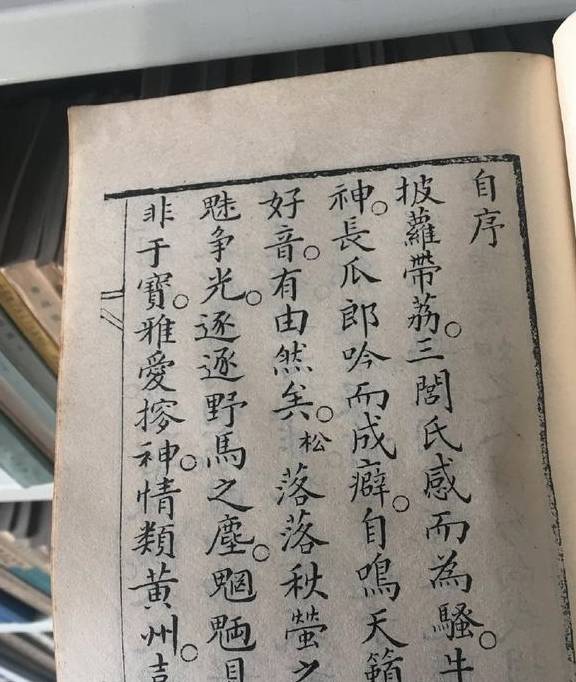 自序
披蘿帶荔。三閭氏感而為騷。牛
神。長爪郎吟而成癖。自鳴天籟
好音。有由然矣。松落落秋螢之
魅争光。逐逐野馬之塵。魍魎見
非干寶。雅愛搜神。情類黃州。喜